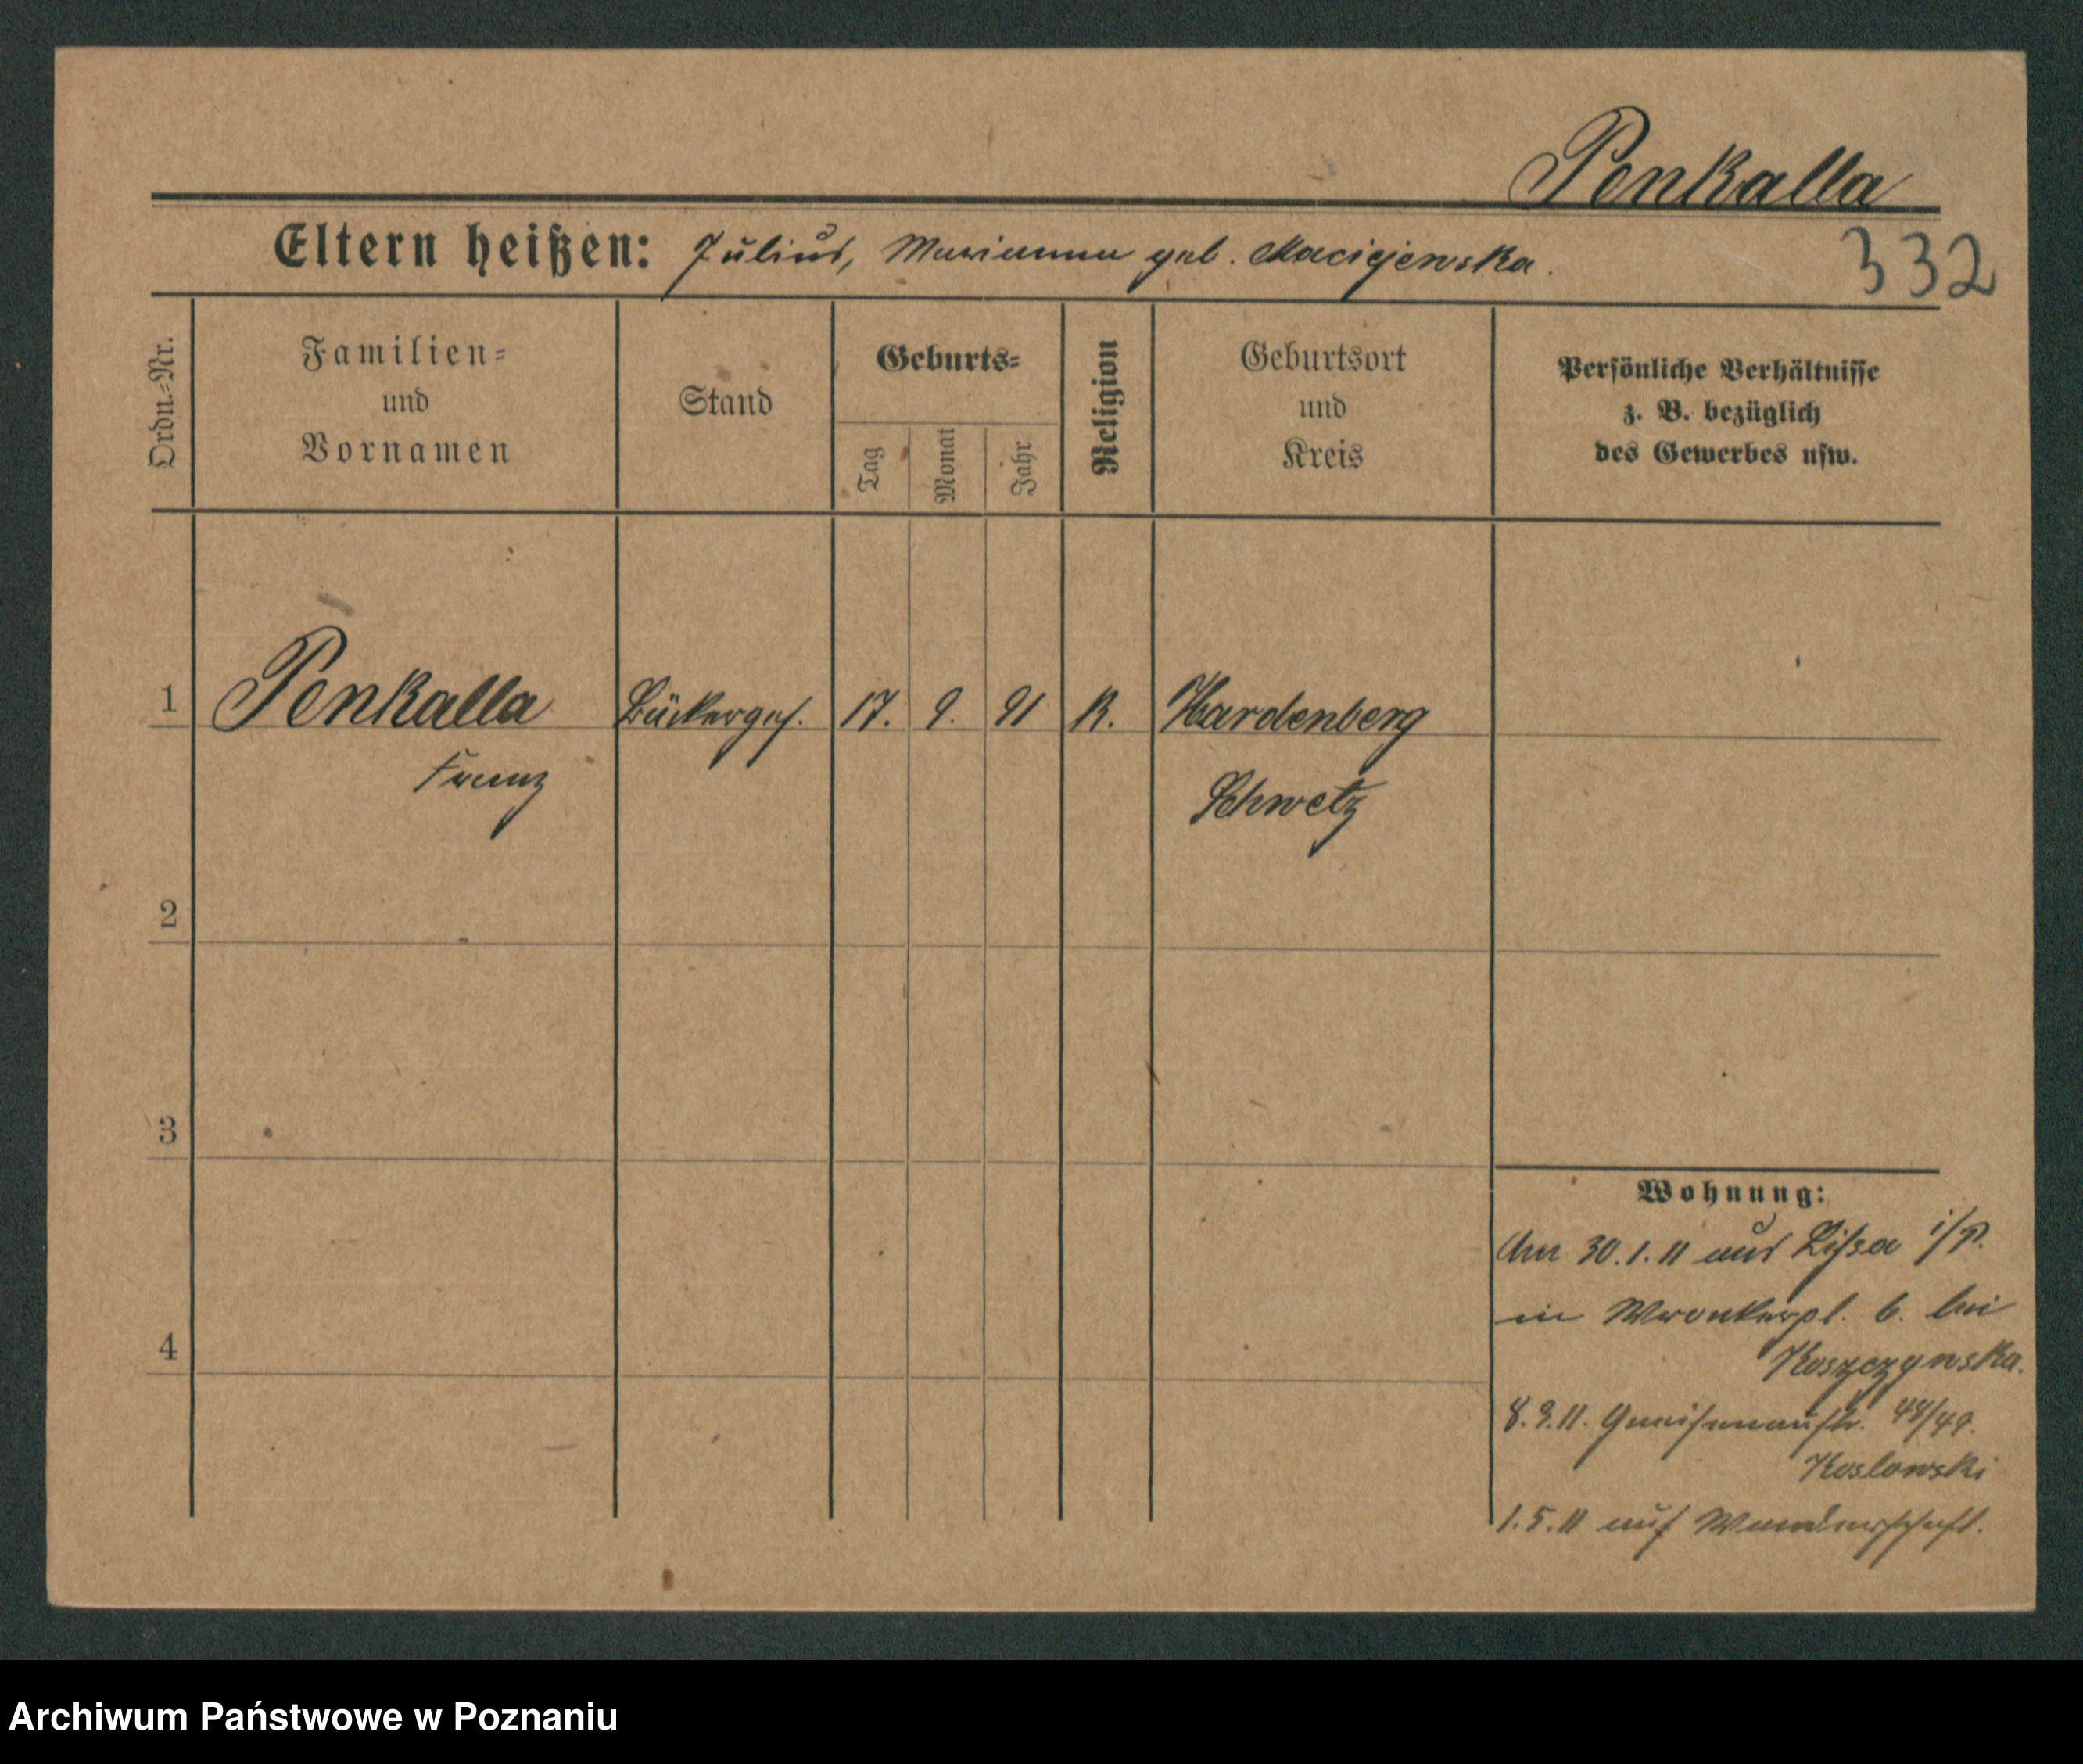 Penkalla
Eltern heißen: Julius, Marianna geb. Maciejewska.
332
Ordn.-Nr.
Familien-
und
Vornamen
Stand
Geburts-
Tag
Monat
Jahr
Religion
Geburtsort
und
Kreis
Persönliche Verhältnisse
z. B. bezüglich
des Gewerbes usw.
1 Penkalla Bäckerges. 17. 9. 91 K. Hardenberg
Franz Schwetz
2
3
4
Wohnung:
Am 30.1.11 aus Lissa i/P.
in Wronkerpl. 6. bei
Koszczynska.
8.3.11. Gneisenaustr. 48/49.
Koslowski
1.5.11 auf Wanderschaft.
Archiwum Państwowe w Poznaniu